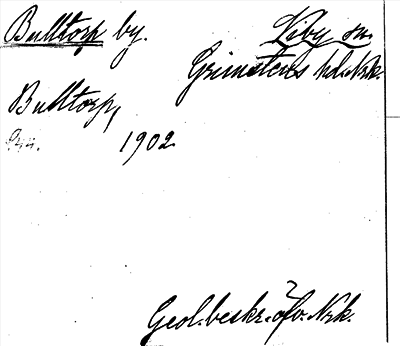 Bulltorp by. Viby sn.
Grimstens hd. Nrk.
Bulltorp,
1902
Geol. beskr. öfv. Nrk.